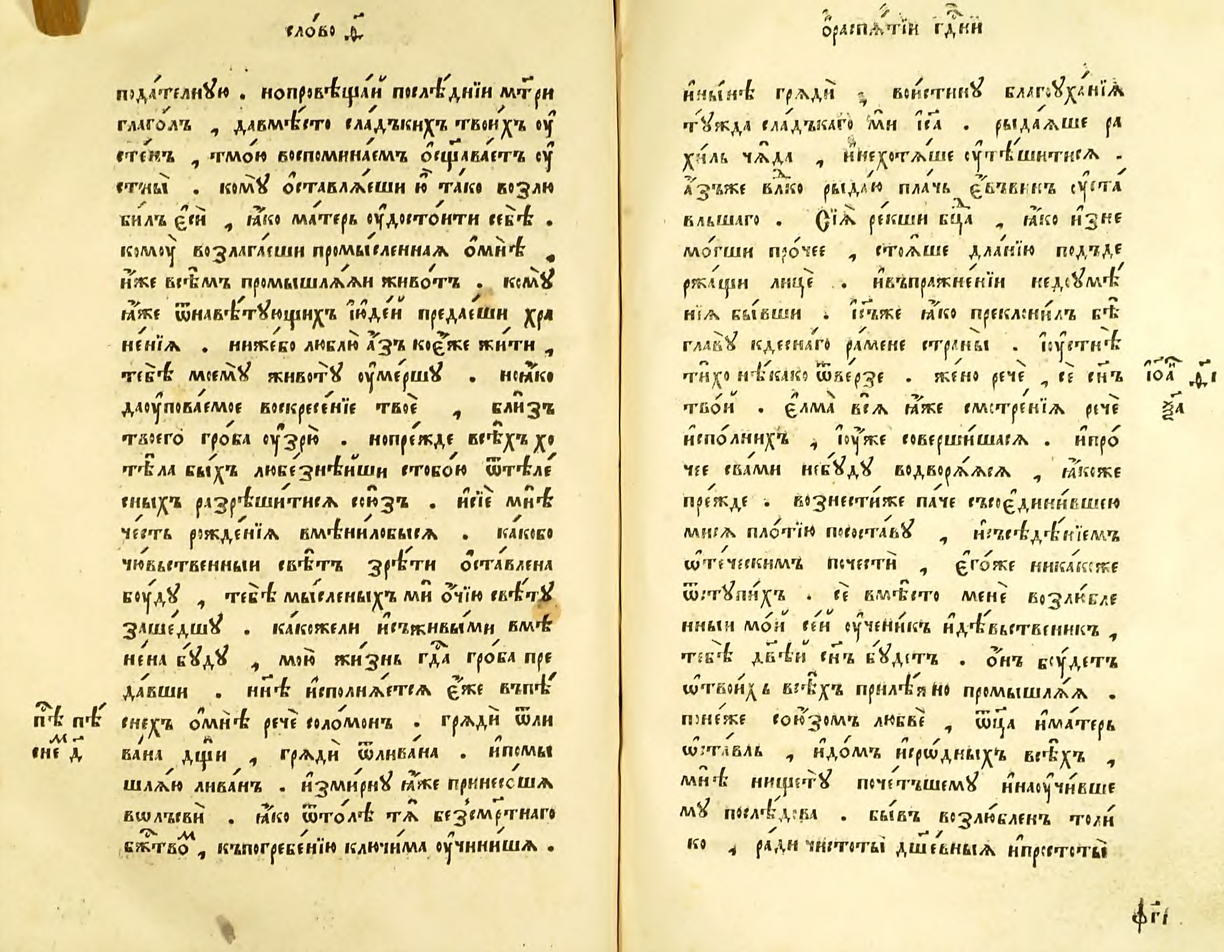 сло́во д҃
пода́телнꙋю . нопровѣща́й послѣ́днїи мт҃ри
глаго́лъ , давмѣ́сто сла́дъкихъ твои́хъ оу҆
сте́нъ , тмо́ю воспомина́емъ ѡ҆сщава́етъ оу҆
стны̀ . комꙋ̀ ѡ҆ставлѧ́еши ю҆̀ та́ко возлю
би́лъ є҆сѝ , ꙗ҆́ко ма́терь оу҆досто́ити себѣ̀ .
комоу̀ возлага́еши промы́сленнаѧ ѡ҆мнѣ̀ ,
и҆́же всѣ́мъ промышлѧ́ѧи живо́тъ . комꙋ̀
ꙗ҆́же ѿнавѣ́тꙋющихъ і҆ꙋде́й предае́ши хра
не́нїѧ . ниже́бо люблю̀ а҆́зъ кое҆́же жи́ти ,
тебѣ̀ моемꙋ̀ животꙋ̀ оу҆ме́ршꙋ . ноꙗ҆́ко
даоу҆пова́емое воскресе́нїе твоѐ , бли́зъ
твоего̀ гро́ба оу҆зрю̀ . нопре́жде всѣ́хъ хо
тѣ́ла бы́хъ любе́знѣйши стобо́ю ѿтѣле́
сныхъ разрѣши́тисѧ сою́зъ . и҆сїѐ мнѣ̀
че́сть рожде́нїѧ вмѣни́лобысѧ . ка́кобо
чю́вьственныи свѣ́тъ зрѣ́ти ѡ҆ста́влена
боу́дꙋ , тебѣ̀ мы́сленыхъ мѝ ѻ҆чїю свѣ́тꙋ
заше́дшꙋ . ка́кожели и҆съживы́ми вмѣ
не́на бꙋ́дꙋ , мою̀ жи́знь гд҇а гро́ба пре
да́вши . нн҃ѣ и҆сполнѧ́етсѧ є҆́же въпѣ́
снехъ ѡ҆мнѣ̀ речѐ соломо́нъ . грѧдѝ ѿли
пѣ́ пѣ́
сне д҃
ва́на дщ҃и , грѧдѝ ѿлива́на . и҆помы
шлѧ́ю лива́нъ . и҆зми́рнꙋ ꙗ҆́же принесо́шѧ
вѡлъсви̑ . ꙗ҆́ко ѿто́лѣ тѧ̀ безсме́ртнаго
бж҃тво́м , къпогребе́нїю ключи́ма оу҆чини́шѧ .
ѡ҆распѧ́тїи гд҇ни
и҆ны́нѣ грѧдѝ , вои́стинꙋ благоꙋха́нїѧ
тꙋ́жда сла́дъкаго мѝ і҆с҃а . рыда́ѧше ра
хи́ль чѧ́да , и҆нехотѧ́ше оу҆тѣ́шитисѧ .
а҆́зъже влд҇ко рыда́ю пла́чь є҆́въвинъ оу҆ста́
вльшаго . Сїѧ̀ ре́кши бц҃а , ꙗ҆́ко и҆зне
мо́гши про́чее , стоѧ́ше дла́нїю подъде
ржа́щи лицѐ . и҆въпражне́нїи недоꙋмѣ́
нїѧ бы́вши . і҆с҃ъже ꙗ҆́ко преклони́лъ бѣ̀
главꙋ̀ кдесна́го ра́мене страны̀ . і҆оустнѣ̀
ти́хо нѣ́како ѿве́рзе . же́но речѐ , сѐ сн҃ъ
і҆ѡа҃ д҃і
ѯ҃а
тво́й . є҆лма̀ всѧ̀ ꙗ҆́же смотре́нїѧ речѐ
и҆спо́лнихъ , і҆оу҆́же соверши́шасѧ . и҆про́
чее сва́ми небꙋ́дꙋ водворѧ́ѧсѧ , ꙗ҆́коже
пре́жде . вознести́же па́че съсоедини́вшею
мисѧ пло́тїю пососта́вꙋ , и҆съсѣдѣ́нїемъ
ѡ҆те́ческимъ поче́сти , є҆го́же ника́коже
ѿстꙋпи́хъ . сѐ вмѣ́сто менѐ возлю́бле
нныи мо́й се́й оу҆чени́къ и҆дѣ́вьственикъ ,
тебѣ̀ дв҃ѣй сн҃ъ бꙋ́детъ . ѻ҆́нъ боу́детъ
ѡ҆твои́хъ всѣ́хъ прилѣ́жно промышлѧ́ѧ .
поне́же сою́зомъ любвѐ , ѿц҃а и҆ма́терь
ѡ҆ста́вль , и҆до́мъ и҆сро́дныхъ всѣ́хъ ,
мнѣ̀ нищетꙋ̀ поче́тъшемꙋ и҆наоу҆чи́вше
мꙋ послѣ́дова . бы́въ возлю́бленъ толи́
ко , ра́ди чистоты̀ дш҃е́вныѧ и҆простоты̀
ф҃гі